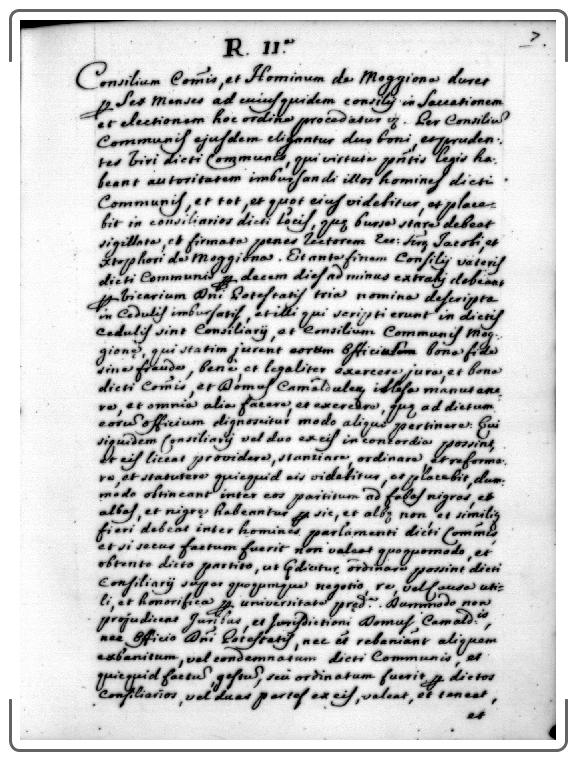 7.
R. II.ª
Consilium Com̃is, et Hominum de Moggiona duret
ꝑ Sex Menses ad cuiusquidem consilij in Savationem
et electionem hoc ordine procedatur vz. Per Consiliũ
Communis ejusdem eligantur duo boni, et pruden-
tes Viri dicti Communis, qui virtute pñtis legis ha-
beant autoritatem imbursandi illos homines dicti
Communis, et tot, et quot eius videbitur, et place-
bit in consiliarios dicti Locis, quę bursę stare debeat
sigillata, et firmata penes Rectorem Ecc: Sñz Jacobi, et
Xtophori de Moggiona. Et ante finem Consilij veteris
dicti Communis ꝑ decem dies ad minus extrahj debeant
ꝑ Vicarium Dñi Potestatis tria nomina descripta
in cedulis imbursatis, et illi qui scripti erunt in dictis
cedulis sint Consiliarij, et Consilium Communis Mog-
gionę, qui statim jurent eorum Officium bona fide
sine fraude, bene et legaliter exercere jura, et bona
dicti Com̃is, et Domus Camaldulen illesa manutene-
re, et omnia alia facere, et exercere, quę ad dictum
eorũ officium dignoscitur modo aliquo pertinere. Qui
siquidem Consiliarij vel duo ex eis in concordia possint,
et eis liceat providere, stanziare, ordinare et reforma-
re, et statuere quicquid eis videbitur, et placebit, dum-
modo obtineant inter eos partitum ad fabas nigras, et
albas, et nigrę habeantur ꝑ sic, et albę non et similiter
fieri debeat inter homines parlamenti dicti Com̃is,
et si secus factum fuerit non valeat quoquomodo, et
obtento dicto partito, ut ꝗdicitur, ordinare possint dicti
Consiliarij super quoqumque negotio, re, vel causa uti-
li, et honorifica ꝑ universitate pred.ª Dummodo non
projudiceat Juribus, et Jurisdictioni Domus Camald.is,
nec Officio Dñi Potestatis, nec et̃ rebaniant aliquem
exbanitum, vel condemnatum dicti Communis, et
quicquid factũ, gestũ, seu ordinatum fuerit ꝑ dictos
Consiliarios, vel duas partes ex eis, valeat, et teneat,
et